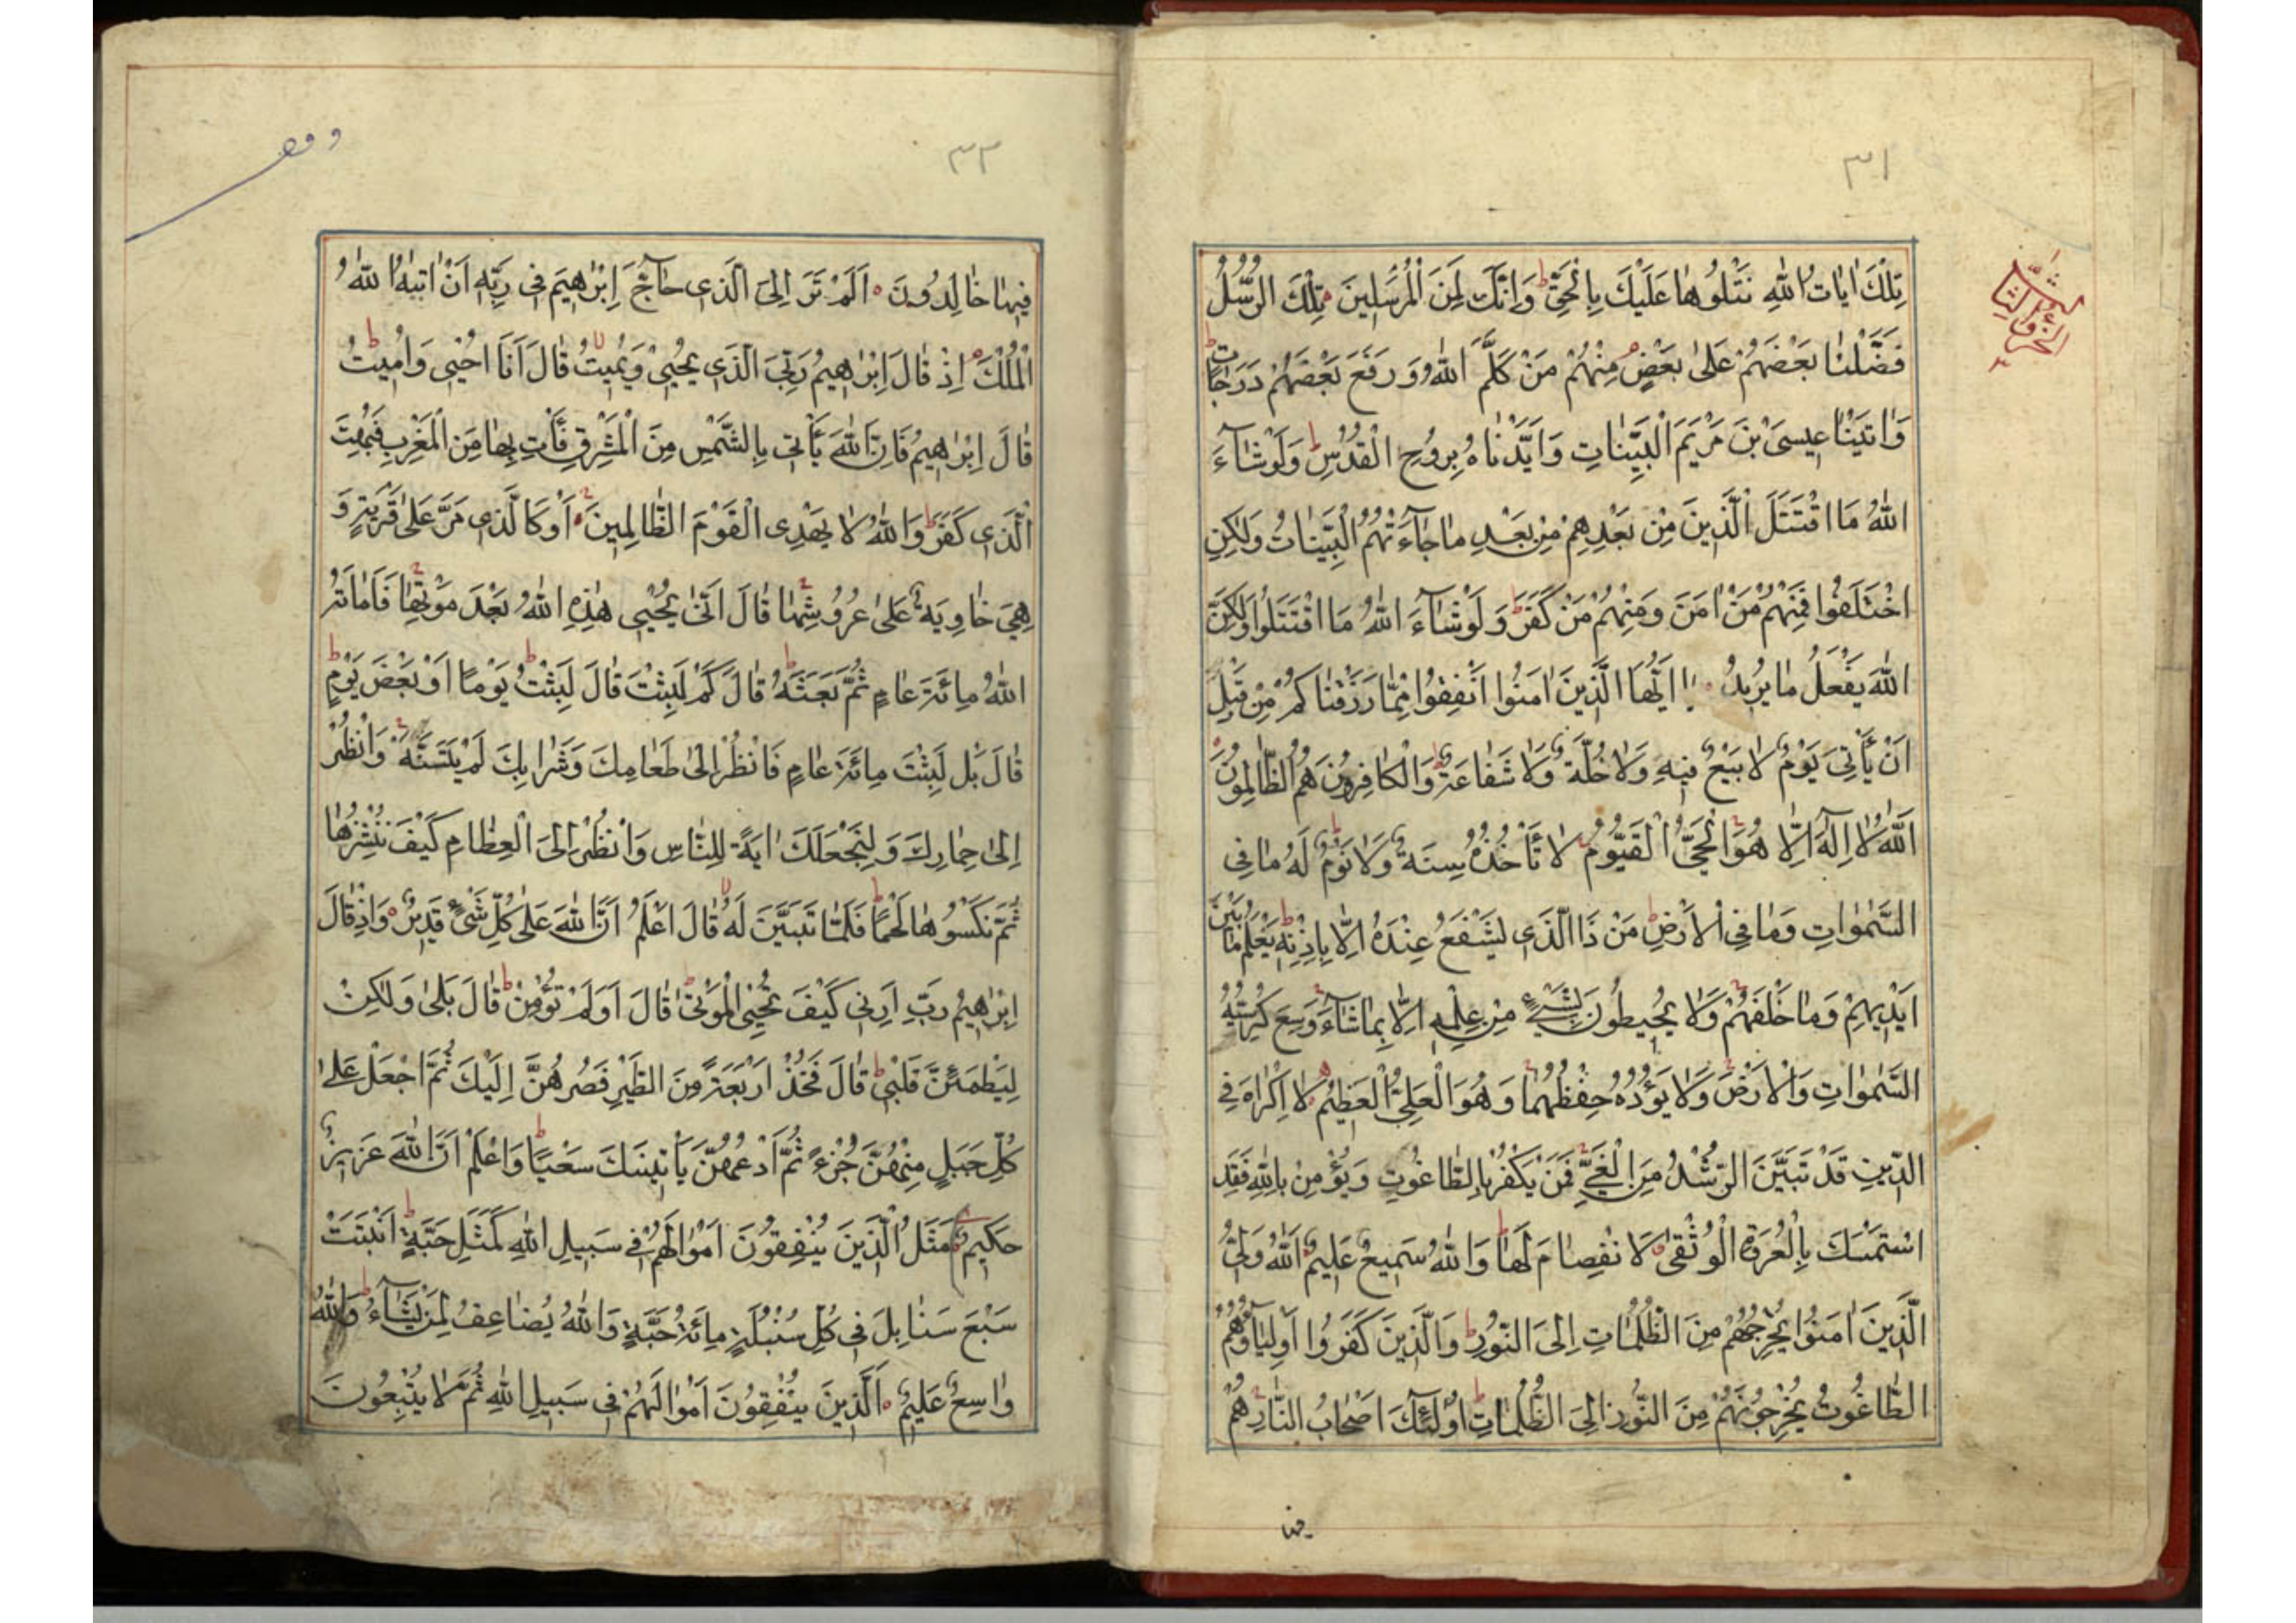 ٣١
تِلْكَ اٰیَاتُ اللّٰهِ نَتْلُوهَا عَلَیْكَ بِالْحَقِّ ط وَاِنَّكَ لَمِنَ الْمُرْسَلِینَ تِلْكَ الرُّسُلُ
الجزء الثالث
فَضَّلْنَا بَعْضَهُمْ عَلٰی بَعْضٍ مِنْهُمْ مَنْ كَلَّمَ اللّٰهُ وَرَفَعَ بَعْضَهُمْ دَرَجَاتٍ ط
وَاٰتَیْنَا عِیسَی بْنَ مَرْیَمَ الْبَیِّنَاتِ وَاَیَّدْنَاهُ بِرُوحِ الْقُدُسِ ط وَلَوْ شَآءَ
اللّٰهُ مَا اقْتَتَلَ الَّذِینَ مِنْ بَعْدِهِمْ مِنْ بَعْدِ مَا جَآءَتْهُمُ الْبَیِّنَاتُ وَلٰكِنِ
اخْتَلَفُوا فَمِنْهُمْ مَنْ اٰمَنَ وَمِنْهُمْ مَنْ كَفَرَ ط وَلَوْ شَآءَ اللّٰهُ مَا اقْتَتَلُوا وَلٰكِنَّ
اللّٰهَ یَفْعَلُ مَا یُرِیدُ یَا اَیُّهَا الَّذِینَ اٰمَنُوا اَنْفِقُوا مِمَّا رَزَقْنَاكُمْ مِنْ قَبْلِ
اَنْ یَأْتِیَ یَوْمٌ لَا بَیْعٌ فِیهِ وَلَا خُلَّةٌ وَلَا شَفَاعَةٌ ط وَالْكَافِرُونَ هُمُ الظَّالِمُونَ
اَللّٰهُ لَا اِلٰهَ اِلَّا هُوَ الْحَیُّ الْقَیُّومُ لَا تَأْخُذُهُ سِنَةٌ وَلَا نَوْمٌ ط لَهُ مَا فِی
السَّمٰوَاتِ وَمَا فِی الْاَرْضِ ط مَنْ ذَا الَّذِی یَشْفَعُ عِنْدَهُ اِلَّا بِاِذْنِهِ ط یَعْلَمُ مَا بَیْنَ
اَیْدِیهِمْ وَمَا خَلْفَهُمْ وَلَا یُحِیطُونَ بِشَیْءٍ مِنْ عِلْمِهِ اِلَّا بِمَا شَآءَ وَسِعَ كُرْسِیُّهُ
السَّمٰوَاتِ وَالْاَرْضَ وَلَا یَؤُدُهُ حِفْظُهُمَا وَهُوَ الْعَلِیُّ الْعَظِیمُ لَا اِكْرَاهَ فِی
الدِّینِ قَدْ تَبَیَّنَ الرُّشْدُ مِنَ الْغَیِّ فَمَنْ یَكْفُرْ بِالطَّاغُوتِ وَیُؤْمِنْ بِاللّٰهِ فَقَدِ
اسْتَمْسَكَ بِالْعُرْوَةِ الْوُثْقٰی لَا نْفِصَامَ لَهَا ط وَاللّٰهُ سَمِیعٌ عَلِیمٌ اَللّٰهُ وَلِیُّ
الَّذِینَ اٰمَنُوا یُخْرِجُهُمْ مِنَ الظُّلُمَاتِ اِلَی النُّورِ ط وَالَّذِینَ كَفَرُوا اَوْلِیَآؤُهُمُ
الطَّاغُوتُ یُخْرِجُونَهُمْ مِنَ النُّورِ اِلَی الظُّلُمَاتِ ط اُولٰئِكَ اَصْحَابُ النَّارِ هُمْ
فیها
٣٢
فِیهَا خَالِدُونَ اَلَمْ تَرَ اِلَی الَّذِی حَآجَّ اِبْرٰهِیمَ فِی رَبِّهِ اَنْ اٰتٰیهُ اللّٰهُ
الْمُلْكَ اِذْ قَالَ اِبْرٰهِیمُ رَبِّیَ الَّذِی یُحْیِی وَیُمِیتُ قَالَ اَنَا اُحْیِی وَاُمِیتُ ط
قَالَ اِبْرٰهِیمُ فَاِنَّ اللّٰهَ یَأْتِی بِالشَّمْسِ مِنَ الْمَشْرِقِ فَأْتِ بِهَا مِنَ الْمَغْرِبِ فَبُهِتَ
الَّذِی كَفَرَ ط وَاللّٰهُ لَا یَهْدِی الْقَوْمَ الظَّالِمِینَ اَوْ كَالَّذِی مَرَّ عَلٰی قَرْیَةٍ وَ
هِیَ خَاوِیَةٌ عَلٰی عُرُوشِهَا قَالَ اَنّٰی یُحْیِی هٰذِهِ اللّٰهُ بَعْدَ مَوْتِهَا فَاَمَاتَهُ
اللّٰهُ مِائَةَ عَامٍ ثُمَّ بَعَثَهُ ط قَالَ كَمْ لَبِثْتَ قَالَ لَبِثْتُ یَوْمًا اَوْ بَعْضَ یَوْمٍ ط
قَالَ بَلْ لَبِثْتَ مِائَةَ عَامٍ فَانْظُرْ اِلٰی طَعَامِكَ وَشَرَابِكَ لَمْ یَتَسَنَّهْ وَانْظُرْ
اِلٰی حِمَارِكَ وَلِنَجْعَلَكَ اٰیَةً لِلنَّاسِ وَانْظُرْ اِلَی الْعِظَامِ كَیْفَ نُنْشِزُهَا
ثُمَّ نَكْسُوهَا لَحْمًا ط فَلَمَّا تَبَیَّنَ لَهُ قَالَ اَعْلَمُ اَنَّ اللّٰهَ عَلٰی كُلِّ شَیْءٍ قَدِیرٌ وَاِذْ قَالَ
اِبْرٰهِیمُ رَبِّ اَرِنِی كَیْفَ تُحْیِی الْمَوْتٰی قَالَ اَوَلَمْ تُؤْمِنْ ط قَالَ بَلٰی وَلٰكِنْ
لِیَطْمَئِنَّ قَلْبِی ط قَالَ فَخُذْ اَرْبَعَةً مِنَ الطَّیْرِ فَصُرْهُنَّ اِلَیْكَ ثُمَّ اجْعَلْ عَلٰی
كُلِّ جَبَلٍ مِنْهُنَّ جُزْءً ثُمَّ ادْعُهُنَّ یَأْتِینَكَ سَعْیًا ط وَاعْلَمْ اَنَّ اللّٰهَ عَزِیزٌ
حَكِیمٌ مَثَلُ الَّذِینَ یُنْفِقُونَ اَمْوَالَهُمْ فِی سَبِیلِ اللّٰهِ كَمَثَلِ حَبَّةٍ ط اَنْبَتَتْ
سَبْعَ سَنَابِلَ فِی كُلِّ سُنْبُلَةٍ مِائَةُ حَبَّةٍ وَاللّٰهُ یُضَاعِفُ لِمَنْ یَشَآءُ ط وَاللّٰهُ
وَاسِعٌ عَلِیمٌ اَلَّذِینَ یُنْفِقُونَ اَمْوَالَهُمْ فِی سَبِیلِ اللّٰهِ ثُمَّ لَا یُتْبِعُونَ